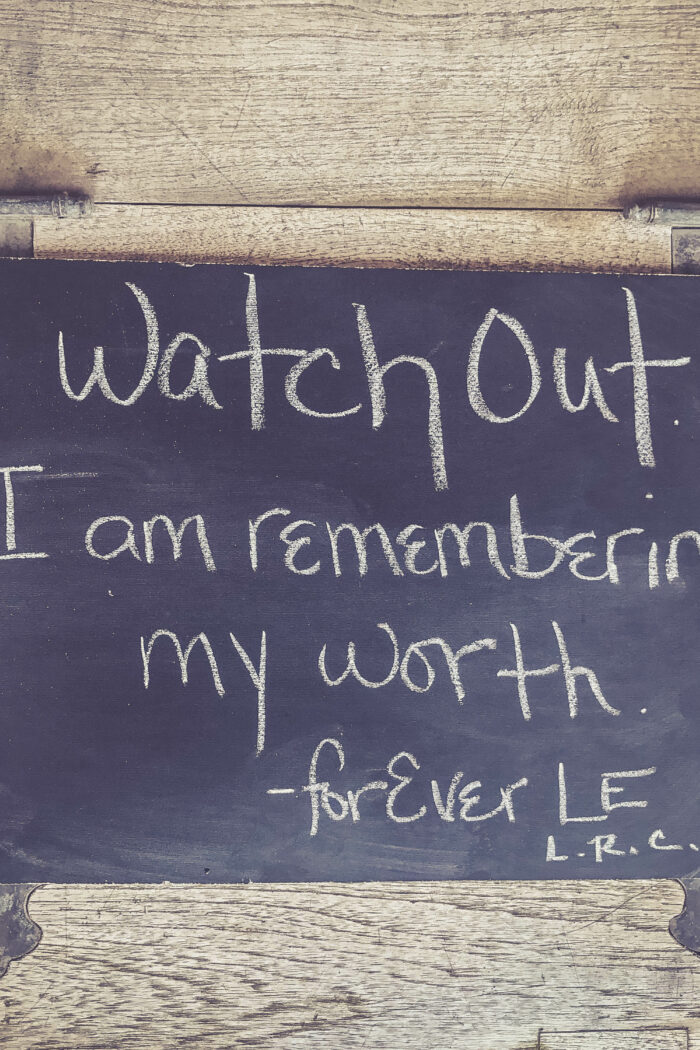 Watch Out.
I am rememberin
my worth.
-forEver LE
L.R.C.